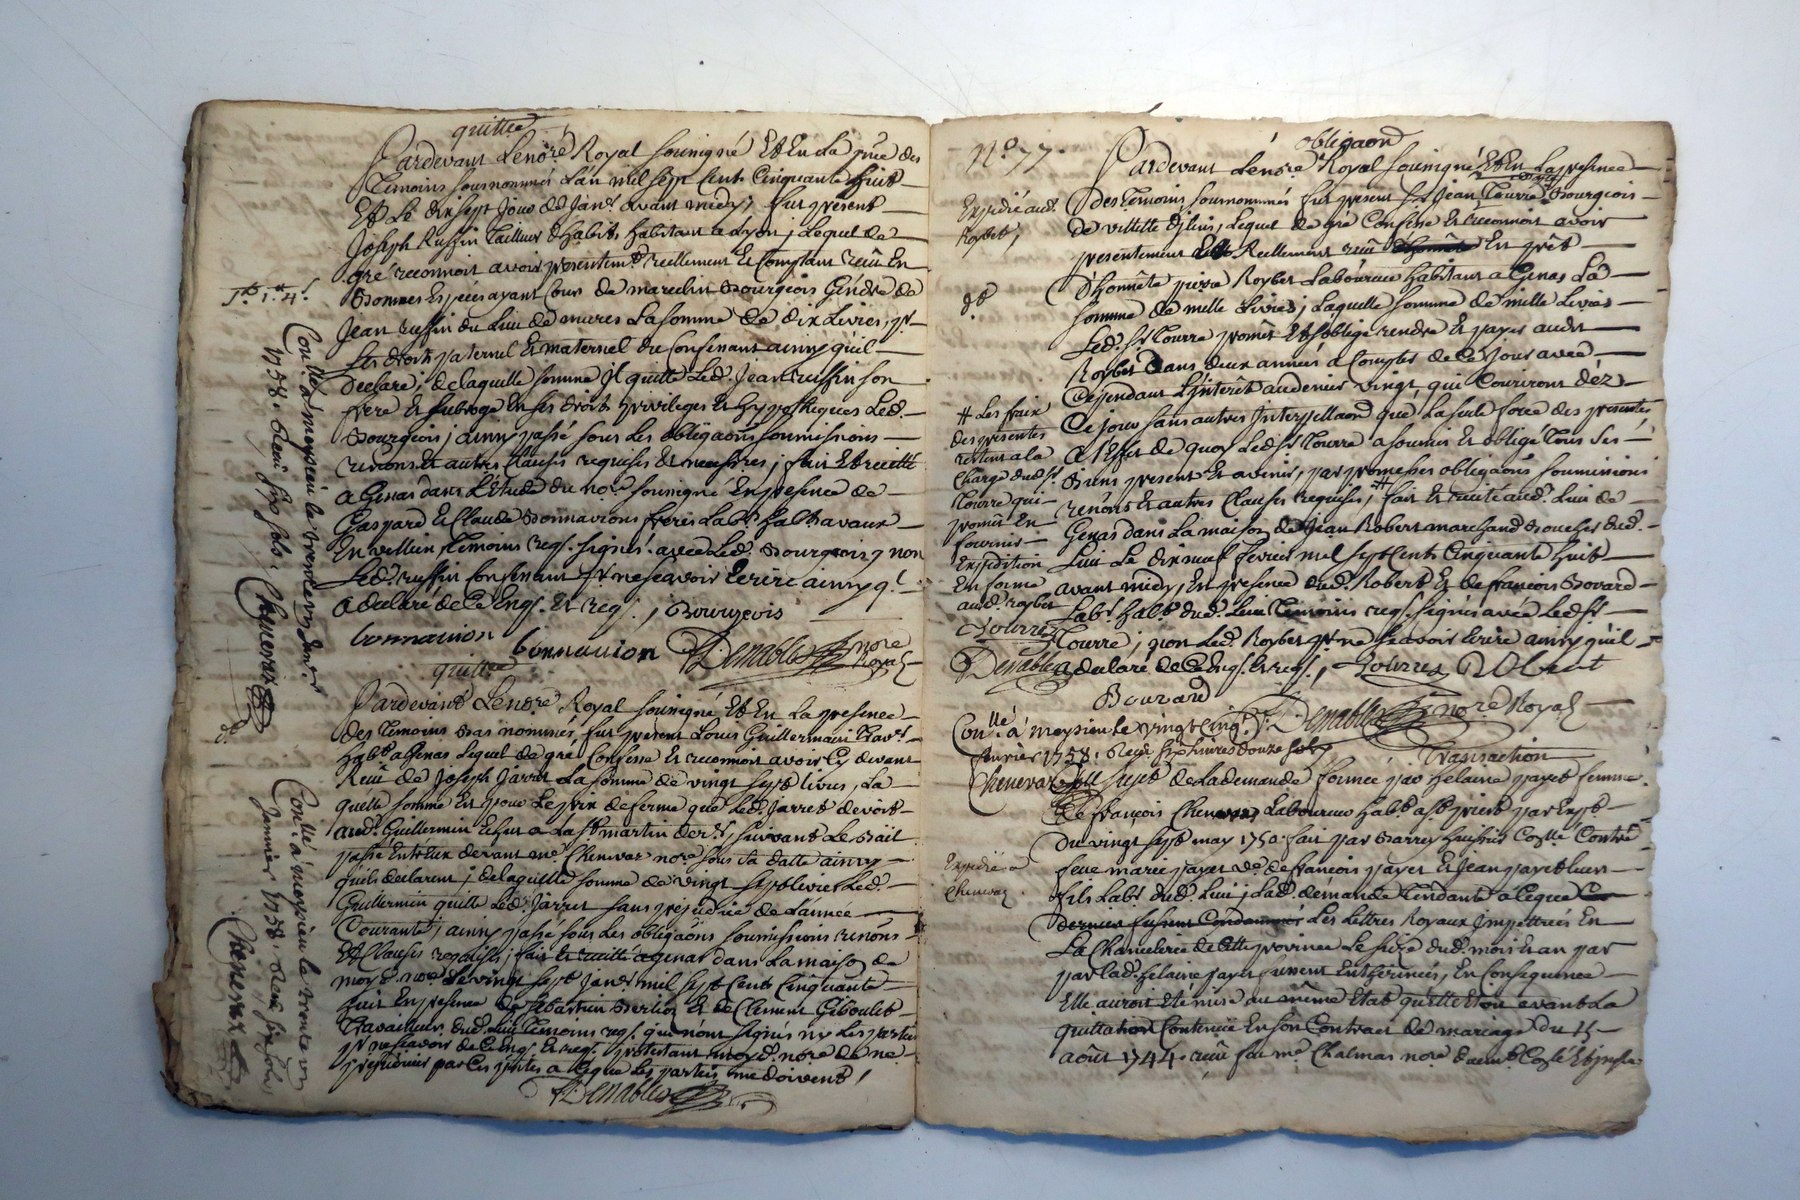 quittce
Pardevant Le nore Royal soussigné Et En La pnce des
Temoins sousnommés L'an mil sept Cent Cinquante huit
Et Le dix sept Jour de Janr. avant midy, fut présent
Joseph Ruffin Tailleur d'habits habitant à Lyon, Lequel de
gré reconnoit avoir presentemt. reellement Et Comptant receu En
Sommes Especes ayant Cours de marechin Bourgeois Gendre de
Jean ruffin du Lieu de mures La somme de dix Livres, pr.
Les droits paternel Et maternel du Confessant ainsy qu'il
declare, de laquelle somme Il quitte Led. Jean ruffin son
frere Et subroge En ses droits privileges Et hypotheques Led.
Bourgeois, ainsy passé sous Les obligaons soumissions
renons Et autres Clauses requises Et necessaires, fait Et recitté
a Genas dans L'Etude du nore. soussigné En presence de
Gaspard Et Claude Bonnavions freres Labrs. habts. a vaux
En vellein Temoins req. signés avec Led. Bourgeois, non
Led. ruffin Confessant pr. ne scavoir Ecrire ainsy q'l
a declaré de Ce Enq. Et req. , Bourgeois
bonnauion
bonnauion Denables nore
Royal
quittce
Pardevant Le nore Royal soussigné Et En La presence
des Temoins bas nommés, fut présent Louis Guillermain Travr.
habt. a Genas Lequel de gré Confesse Et reconnoit avoir Cy devant
Receu de Joseph Jarret La somme de vingt sept livres, La
quelle somme Est pour Le prix de ferme que Led. Jarret devoit
aud. Guillermin Echue a La St martin derr. suivant Le Bail
passé Entr'eux devant me. Chenevaz nore sous sa datte ainsy
qu'ils declarent, de laquelle somme de vingt sept livres Led.
Guillermin quitte Led. Jarret sans prejudice de L'année
Courante, ainsy passé sous Les obligaons soumissions renons
Et Clauses requises, fait Et recitté a genas dans La maison de
moyd. nore Le vingt sept Janr. mil sept Cent Cinquante
huit En presence de Sebastien Berlioz Et de Clement Giboulet
Travailleurs dud. Lieu Temoins req. qui n'ont signés ny Les parties
pr. ne scavoir de Ce Enq. Et req. protestant moyd. nore de ne
prejudicier par Ces pntes a Ce que Les parties me doivent,
Denables
Conllé a meysieu le trente un Janr.
1758. Receu six sols. Chenevaz
Conllé a meysieu le trente un
Janvier 1758. Receu six sols
Chenevaz
No. 77.
obligaon
Pardevant Le nore Royal soussigné Et En La presence
des Temoins sousnommés fut present sr. Jean Tourre Bourgeois
de villette d'Jlins, Lequel de gré Confesse Et reconnoit avoir
presentement Reellement receu En prêt
d'honnête pierre Roybet Laboureur habitant a Genas La
somme de mille Livres, Laquelle somme de mille Livres
Led. sr. Tourre promet Et s'oblige rendre Et payer audt
Roybet dans deux années a Compter de Ce Jour avec
Cependant L'Jnterêt au denier vingt, qui Courront déz
Ce jour sans autres Jnterpellaon que La seule force des presentes
A L'Effet de quoy Led. sr. Tourre a soumis Et obligé Tous ses
Biens present Et avenir, par promesses obligaons soumissions
renons Et autres Clauses requises, # fait Et recité aud. Lieu de
Genas dans La maison de Jean Robert marchand Boucher dud.
Lieu Le dix neuf fevrier mil sept Cents Cinquante huit
avant midy, En presence dud. Robert Et de francois Bovard
Labr. habt. dud. Lieu Temoins req. signés avec Led. sr.
Tourre, non Led. Roybet pr. ne scavoir Ecrire ainsy qu'il
a declaré de Ce Enq. Et req. , Tourres Robert
Bouvard
Denables nore Royal
Expedié aud.
Roybet,
# Les frais
des presentes
restent a la
Charge dud. sr.
Tourre qui
promet En
fournir
Expedition
En forme
aud. roybet
Tourres
Denables
Conllé a meysieu le vingt cinq
fevrier 1758. Receu six livres douze sols
Chenevaz
Transaction
Sur Le sujet de La demande formée par helaine payet femme
de francois Chenevaz Laboureur habt. a St priest par Expt.
du vingt sept may 1750. fait par Barrey huissier Collé Contre
feue marie payet ve. de francois payet Et Jean payet leur
fils Labr. dud. Lieu, Lad. demande Tendante a Ce que
Les Lettres Royaux Jmpettrées En
La Chancelerie de Cette province Le seize dud. mois Et an par
par Lad. helaine payet fussent Enthérinées, En Consequence
Elle auroit Eté mise au même Etat qu'Elle Etoit avant La
quittation Contenüe En son Contract de mariage du 15
août 1744. receu par me Chalmas nore
Expedié a
Chenevaz